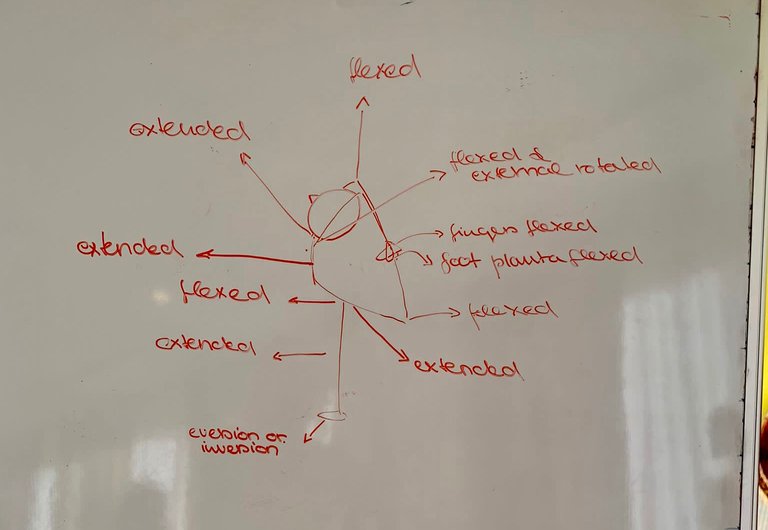 flexed
extended
flexed &
external rotated
fingers flexed
extended
foot planta flexed
flexed
flexed
extended
extended
eversion or
inversion